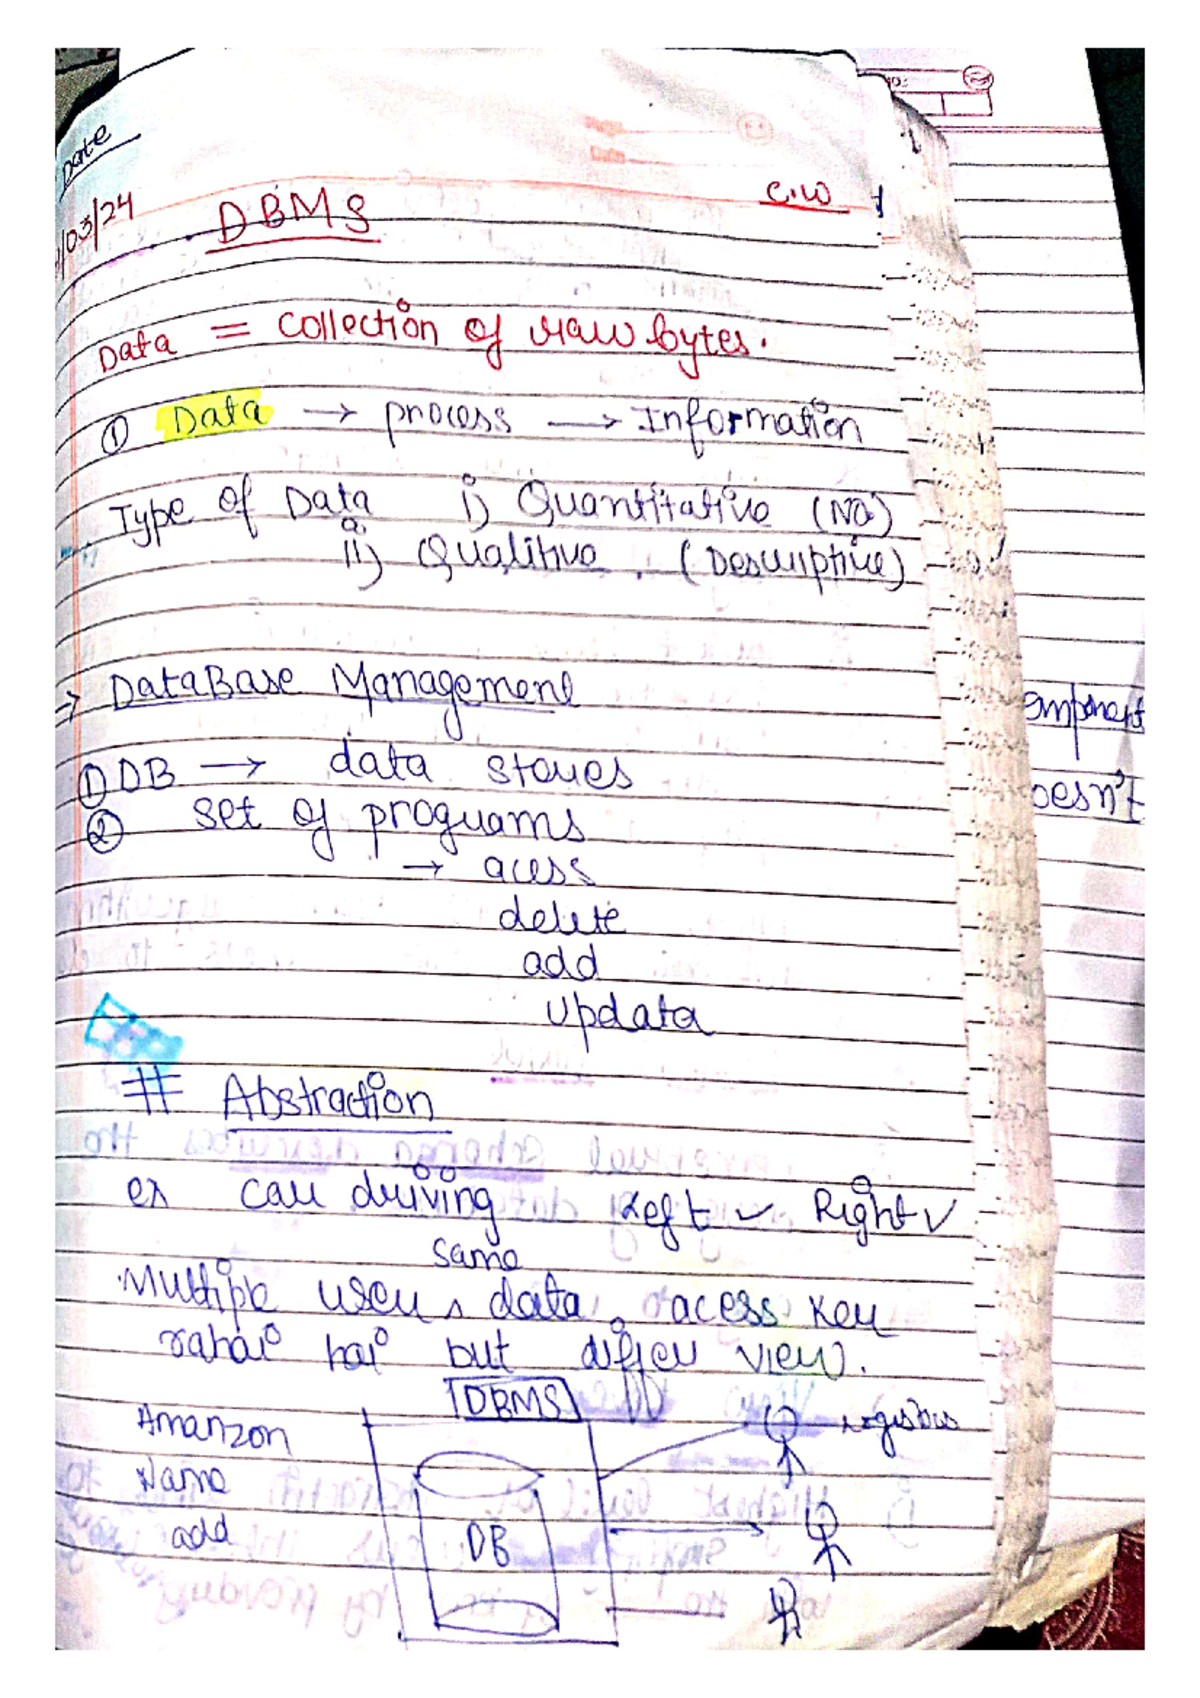 Date
/03/24
C.W
DBMS
Data = Collection of raw bytes.
① Data → process → Information
Type of Data i) Quantitative (No)
ii) Qualitive. (Descriptive)
→ DataBase Management
① DB → data stores
② set of programs
→ acess
delete
add
updata
# Abstraction
ex car driving Left ✓ Right ✓
same
Multiple user ^ data acess ker
rahai hai but differ view.
DBMS
Amanzon
Name
add
DB
omponent
oesn't